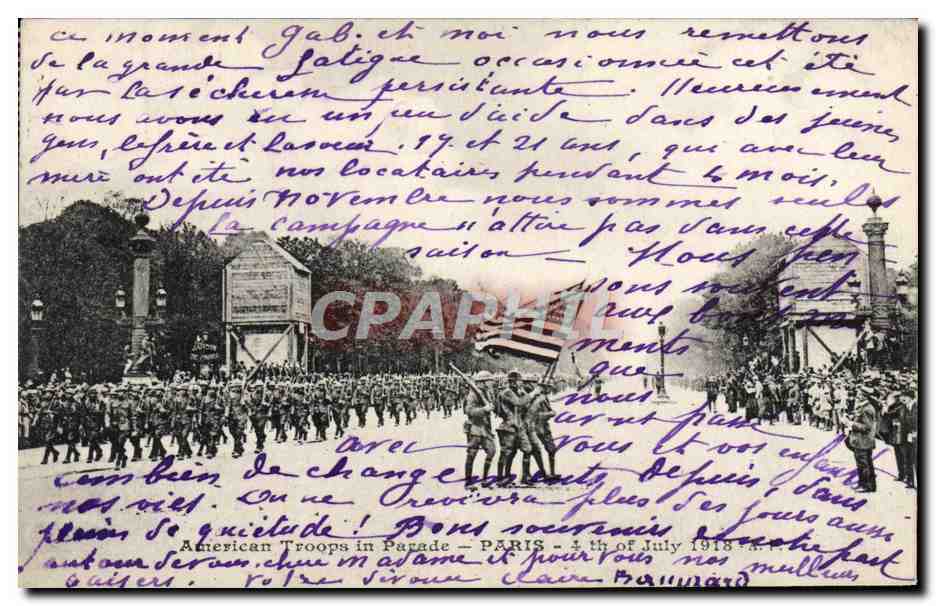 ce moment Gab. et moi nous remettons
de la grande fatigue occasionnée cet été
par la sécheresse persistante. Heureusement
nous avons eu un peu d'aide dans des jeunes
gens, le frère et la soeur. 19 et 21 ans, qui avec leur
mère ont été nos locataires pendant 4 mois.
Depuis Novembre nous sommes seules
La campagne n'attire pas dans cette
saison - Nous pen
sons souvent
aux bons mo
ments
que
nous
avons passé
avec vous et vos enfants
combien de changements depuis, dans
nos vies. On ne revivra plus des jours aussi
pleins de quiétude! Bons souvenirs
autour de vous, chère madame et pour vous nos meilleurs
baisers. Votre dévouée Claire
CPAPHIL
American Troops in Parade - PARIS - 4 th of July 1918